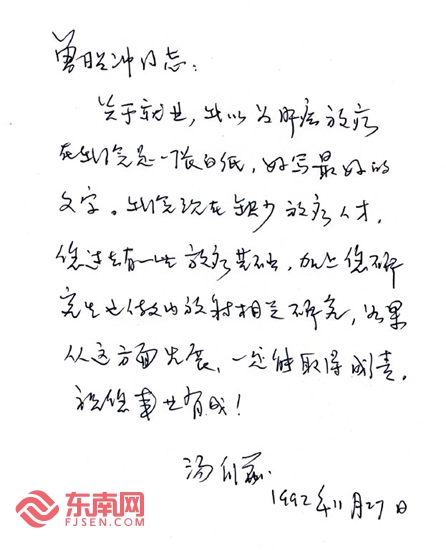 曾昭冲同志：
关于就业，我以为肝癌放疗
在我院是一张白纸，好写最好的
文字。我院现在缺少放疗人才，
您过去有一些放疗基础，加上您研
究生也做内放射相关研究，如果
从这方面发展，一定能取得成绩。
祝您事业有成！
汤钊猷
1992年11月27日
东南网
FJSEN.COM